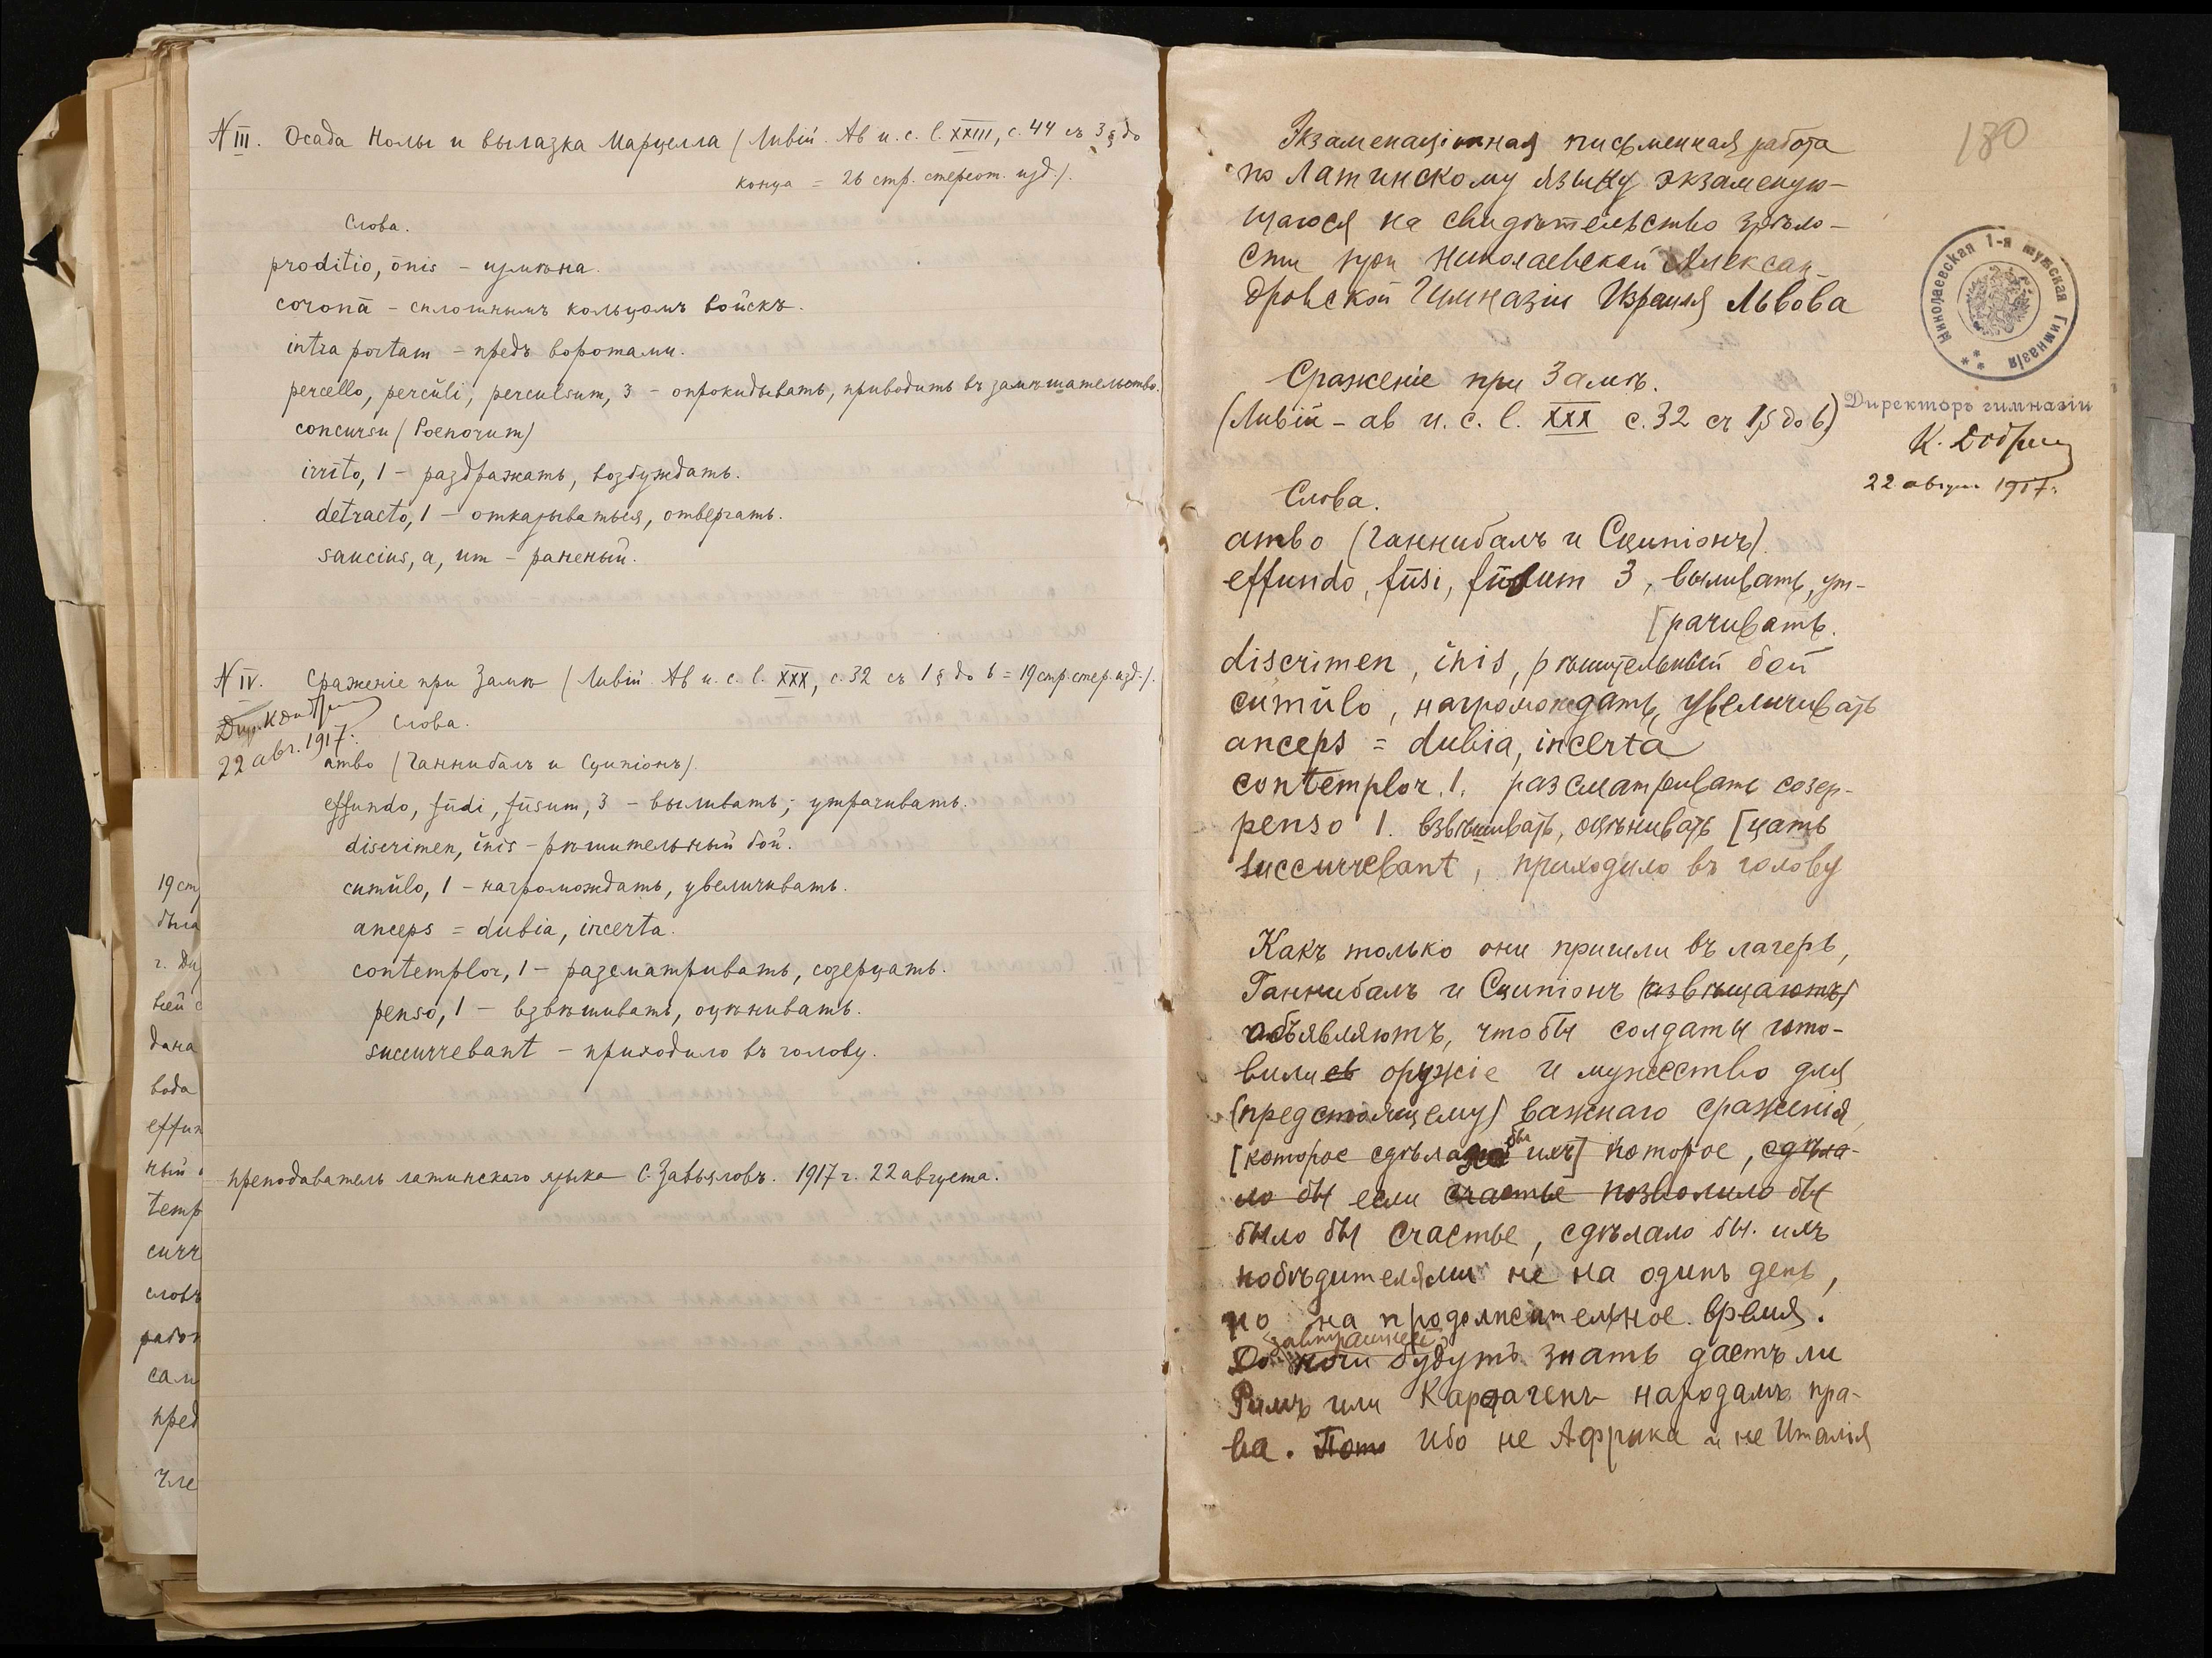 N III. Осада Нолы и вылазка Марцелла (Ливій. Ab u. c. l. XXIII, c. 44 съ 3 § до
конца = 26 стр. стереот. изд.).
Слова.
proditio, ōnis – измѣна.
coronā – сплошнымъ кольцомъ войскъ.
intra portam – предъ воротами.
percello, percŭli, perculsum, 3 – опрокидывать, приводить въ замѣшательство.
concursu (Poenorum)
irrīto, 1 – раздражать, возбуждать.
detracto, 1 – отказываться, отвергать.
saucius, a, um – раненый.
N IV. Сраженіе при Замѣ (Ливій. Ab u. c. l. XXX, c. 32 съ 1 § до 6 = 19 стр. стер. изд.).
Дир.
22 авг. 1917 г.
Слова.
ambo (Ганнибалъ и Сципіонъ).
effundo, fūdi, fūsum, 3 – выливать; утрачивать.
discrimen, ĭnis – рѣшительный бой.
cumŭlo, 1 – нагромождать, увеличивать.
anceps = dubia, incerta.
contemplor, 1 – разсматривать, созерцать.
penso, 1 – взвѣшивать, оцѣнивать.
succurrebant – приходило въ голову.
преподаватель латинскаго языка С. Завьяловъ. 1917 г. 22 августа.
19 ст
была
г. Ди
вей с
дана
вода
effun
ный
temp
curr
словъ
работ
сам
пред
Чле
180
Экзаменаціонная письменная работа
по Латинскому языку экзаменую-
щагося на свидѣтельство зрѣло-
сти при Николаевской Алексан-
дровской Гимназіи Израиля Львова
Николаевская 1-я мужская Гимназія
Директоръ гимназіи
22 августа 1917 г.
Сраженіе при Замѣ.
(Ливій – ab u. c. l. XXX c. 32 съ 1 § до 6)
Слова.
ambo (Ганнибалъ и Сципіонъ).
effundo, fūsi, fūsum 3, выливать, ут-
[рачивать.
discrimen, ĭnis, рѣшительный бой
cumŭlo, нагромождать, увеличивать
anceps = dubia, incerta
contemplor. 1. разсматривать созер-
penso 1. взвѣшивать, оцѣнивать [цать
succurrebant, приходило въ голову
Какъ только они пришли въ лагерь,
Ганнибалъ и Сципіонъ (извѣщаютъ)
объявляютъ, чтобы солдаты гото-
вились оружіе и мужество для
(предстоящему) важнаго сраженія,
[которое сдѣлало бы ихъ] которое, сдѣла-
ло бы если счастье позволило бы
было бы счастье, сдѣлало бы. ихъ
побѣдителями не на одинъ день,
но на продолжительное время.
завтрашней
До ночи будутъ знать дастъ ли
Римъ или Карфагенъ народамъ пра-
ва. Пото Ибо не Африка и не Италія